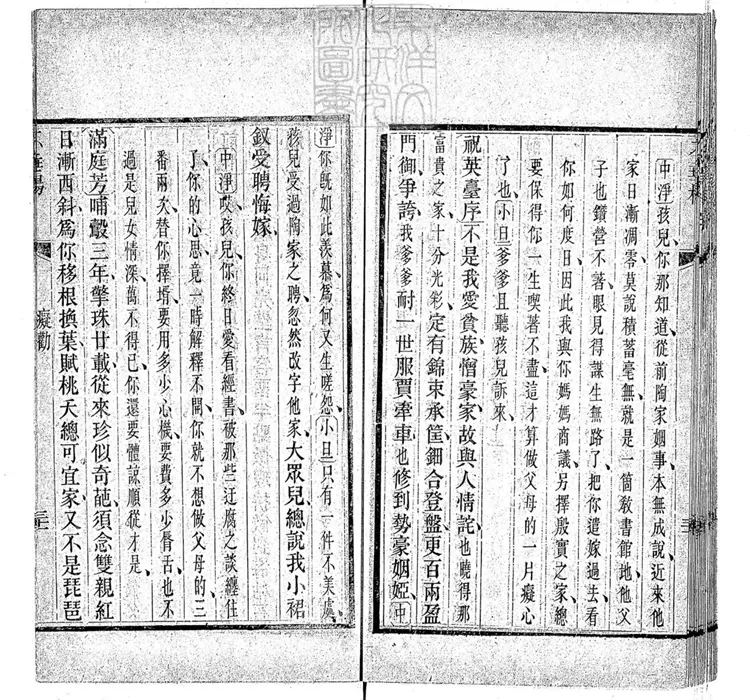 中淨孩兒你那知道從前陶家姻事本無成說近來他
家日漸凋零莫說積蓄毫無就是一箇敎書館地他父
子也鑽營不著眼見得謀生無路了把你遣嫁過去看
你如何度日因此我與你媽媽商議另擇殷實之家總
要保得你一生喫著不盡這才算做父母的一片癡心
了也小旦爹爹且聽孩兒訴來
祝英臺序不是我愛貧族憎豪家故與人情詫也曉得那
富貴之家十分光彩定有錦束承筐鈿合登盤更百兩盈
門御爭誇我爹爹耐一世服賈牽車也修到勢豪姻婭中
淨你旣如此羡慕爲何又生嗟怨小旦只有一件不美處
孩兒受過陶家之聘忽然改字他家大眾兒總說我小裙
釵受聘悔嫁
中淨哎孩兒你終日愛看經書被那些迂腐之談纏住
了你的心思竟一時解釋不開你就不想做父母的三
番兩次替你擇壻要用多少心機要費多少脣舌也不
過是兒女情深萬不得已你還要體諒順從才是
滿庭芳哺鷇三年擎珠廿載從來珍似奇葩須念雙親紅
日漸西斜爲你移根換葉賦桃夭總可宜家又不是琵琶
癡勸
三